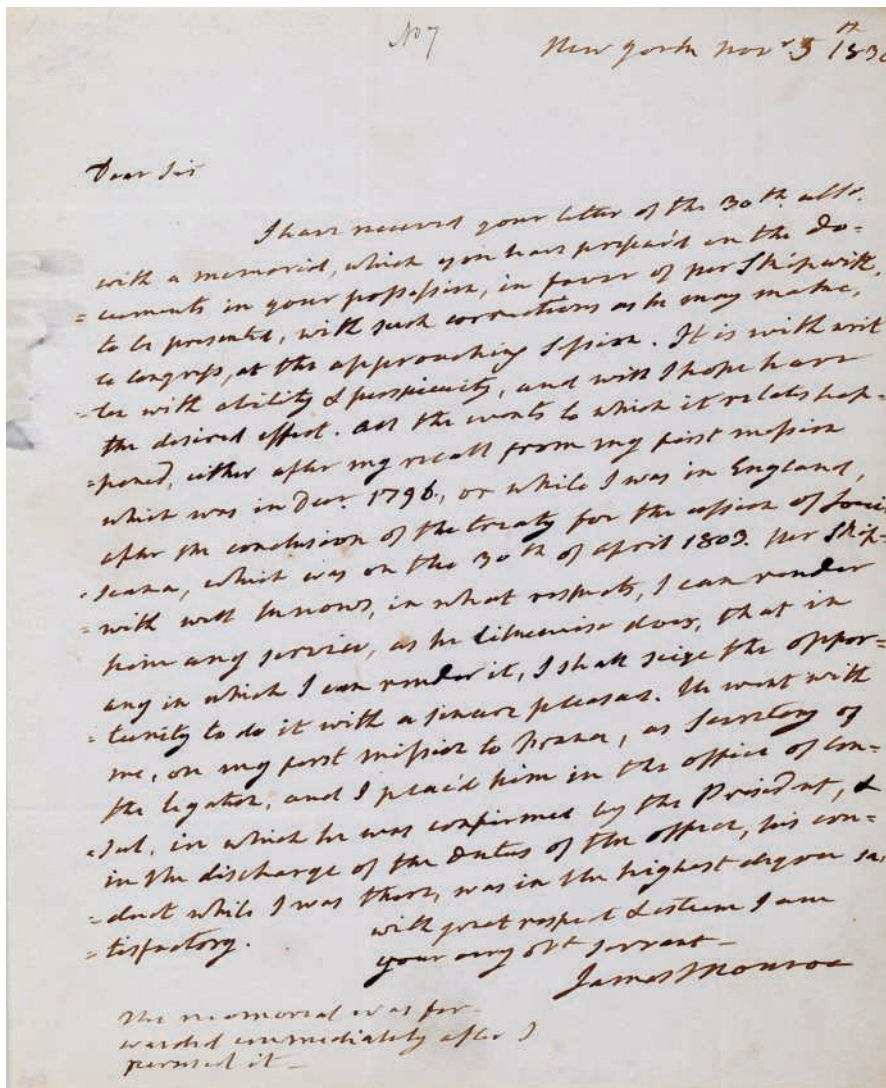 No 7
New York Novr. 5th 1830
Dear Sir
I have received your letter of the 30th. ulto.
with a memorial, which you have prepar'd on the do=
=cuments in your possession, in favor of Mr Skipwith,
to be presented, with such corrections as he may make,
to Congress, at the approaching Session. It is with writ
=ten with ability & perspicuity, and will I hope have
the desired effect. All the events to which it relates hap=
=pened, either after my recall from my first mission
which was in Decr. 1796, or while I was in England,
after the conclusion of the treaty for the cession of Loui
=siana, which was on the 30th of april 1803. Mr Skip=
=with well knows, in what respects, I can render
him any service, as he likewise does, that in
any in which I can render it, I shall seize the oppor=
=tunity to do it with a sincere pleasure. He went with
me, on my first mission to France, as Secretary of
the legation, and I plac'd him in the office of Con=
=sul, in which he was confirmed by the President, &
in the discharge of the duties of the office, his con=
=duct while I was there, was in the highest degree sa
=tisfactory.
with great respect & esteem I am
your very obt servant—
James Monroe
The memorial was for-
warded immediately after I
perused it—